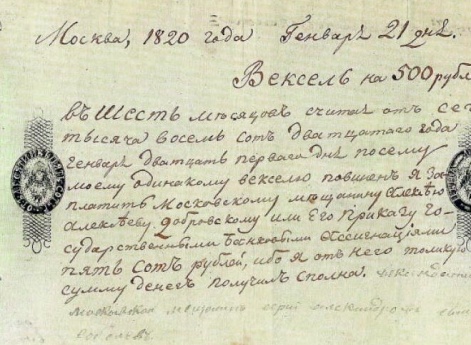 Москва, 1820 года Генваря 21 дня.
Вексель на 500 рубл
въ Шесть мѣсяцовъ считая отъ сег
тысяча восемь сотъ дватцатаго года
Генваря дватцать перваго дня посему
моему одинакому векселю повиненъ я За
платить Московскому мѣщанину Алексѣю
Алексѣеву Добровскому или Его Приказу Го
сударственными банковыми Ассигнаціями
пять сотъ рублей, ибо я отъ него толикую
сумму денегъ получилъ сполна.
московской мещанинъ